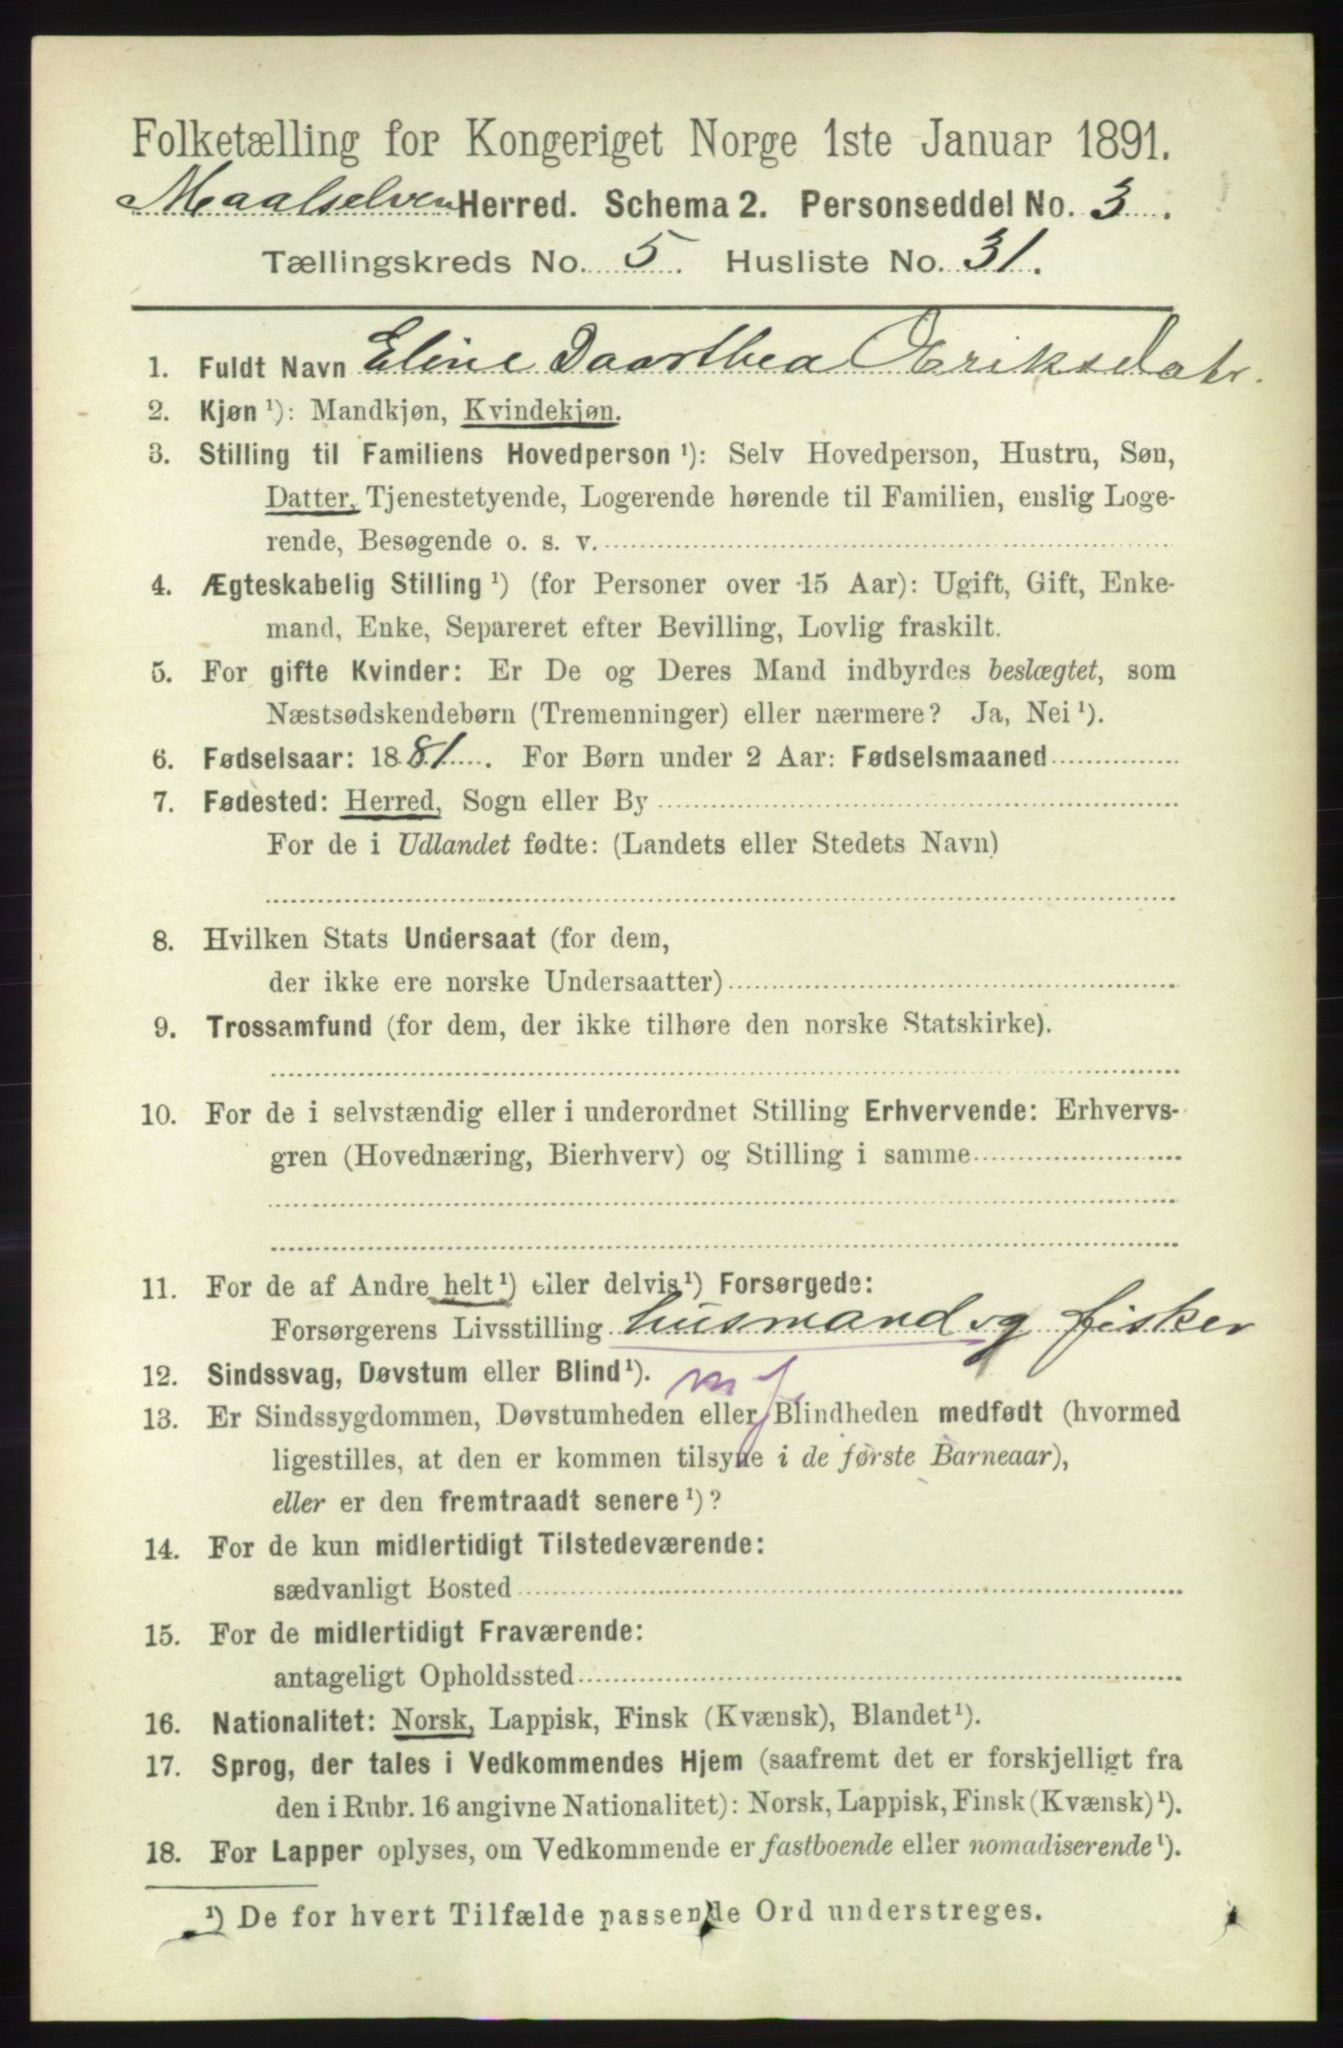 Folketælling for Kongeriget Norge 1ste Januar 1891.
Maalselven Herred. Schema 2. Personseddel No. 3.
Tællingskreds No. 5. Husliste No. 31.
1. Fuldt Navn Eline Daarthea Eriksdatr.
2. Kjøn ¹): Mandkjøn, Kvindekjøn.
3. Stilling til Familiens Hovedperson ¹): Selv Hovedperson, Hustru, Søn,
Datter, Tjenestetyende, Logerende hørende til Familien, enslig Loge-
rende, Besøgende o. s. v.
4. Ægteskabelig Stilling ¹) (for Personer over 15 Aar): Ugift, Gift, Enke-
mand, Enke, Separeret efter Bevilling, Lovlig fraskilt.
5. For gifte Kvinder: Er De og Deres Mand indbyrdes beslægtet, som
Næstsødskendebørn (Tremenninger) eller nærmere? Ja, Nei ¹).
6. Fødselsaar: 1881. For Børn under 2 Aar: Fødselsmaaned
7. Fødested: Herred, Sogn eller By
For de i Udlandet fødte: (Landets eller Stedets Navn)
8. Hvilken Stats Undersaat (for dem,
der ikke ere norske Undersaatter)
9. Trossamfund (for dem, der ikke tilhøre den norske Statskirke).
10. For de i selvstændig eller i underordnet Stilling Erhvervende: Erhvervs-
gren (Hovednæring, Bierhverv) og Stilling i samme
11. For de af Andre helt ¹) eller delvis ¹) Forsørgede:
Forsørgerens Livsstilling husmand og fisker
12. Sindssvag, Døvstum eller Blind ¹).
m f
13. Er Sindssygdommen, Døvstumheden eller Blindheden medfødt (hvormed
ligestilles, at den er kommen tilsyne i de første Barneaar),
eller er den fremtraadt senere ¹)?
14. For de kun midlertidigt Tilstedeværende:
sædvanligt Bosted
15. For de midlertidigt Fraværende:
antageligt Opholdssted
16. Nationalitet: Norsk, Lappisk, Finsk (Kvænsk), Blandet ¹).
17. Sprog, der tales i Vedkommendes Hjem (saafremt det er forskjelligt fra
den i Rubr. 16 angivne Nationalitet): Norsk, Lappisk, Finsk (Kvænsk) ¹).
18. For Lapper oplyses, om Vedkommende er fastboende eller nomadiserende ¹).
¹) De for hvert Tilfælde passende Ord understreges.